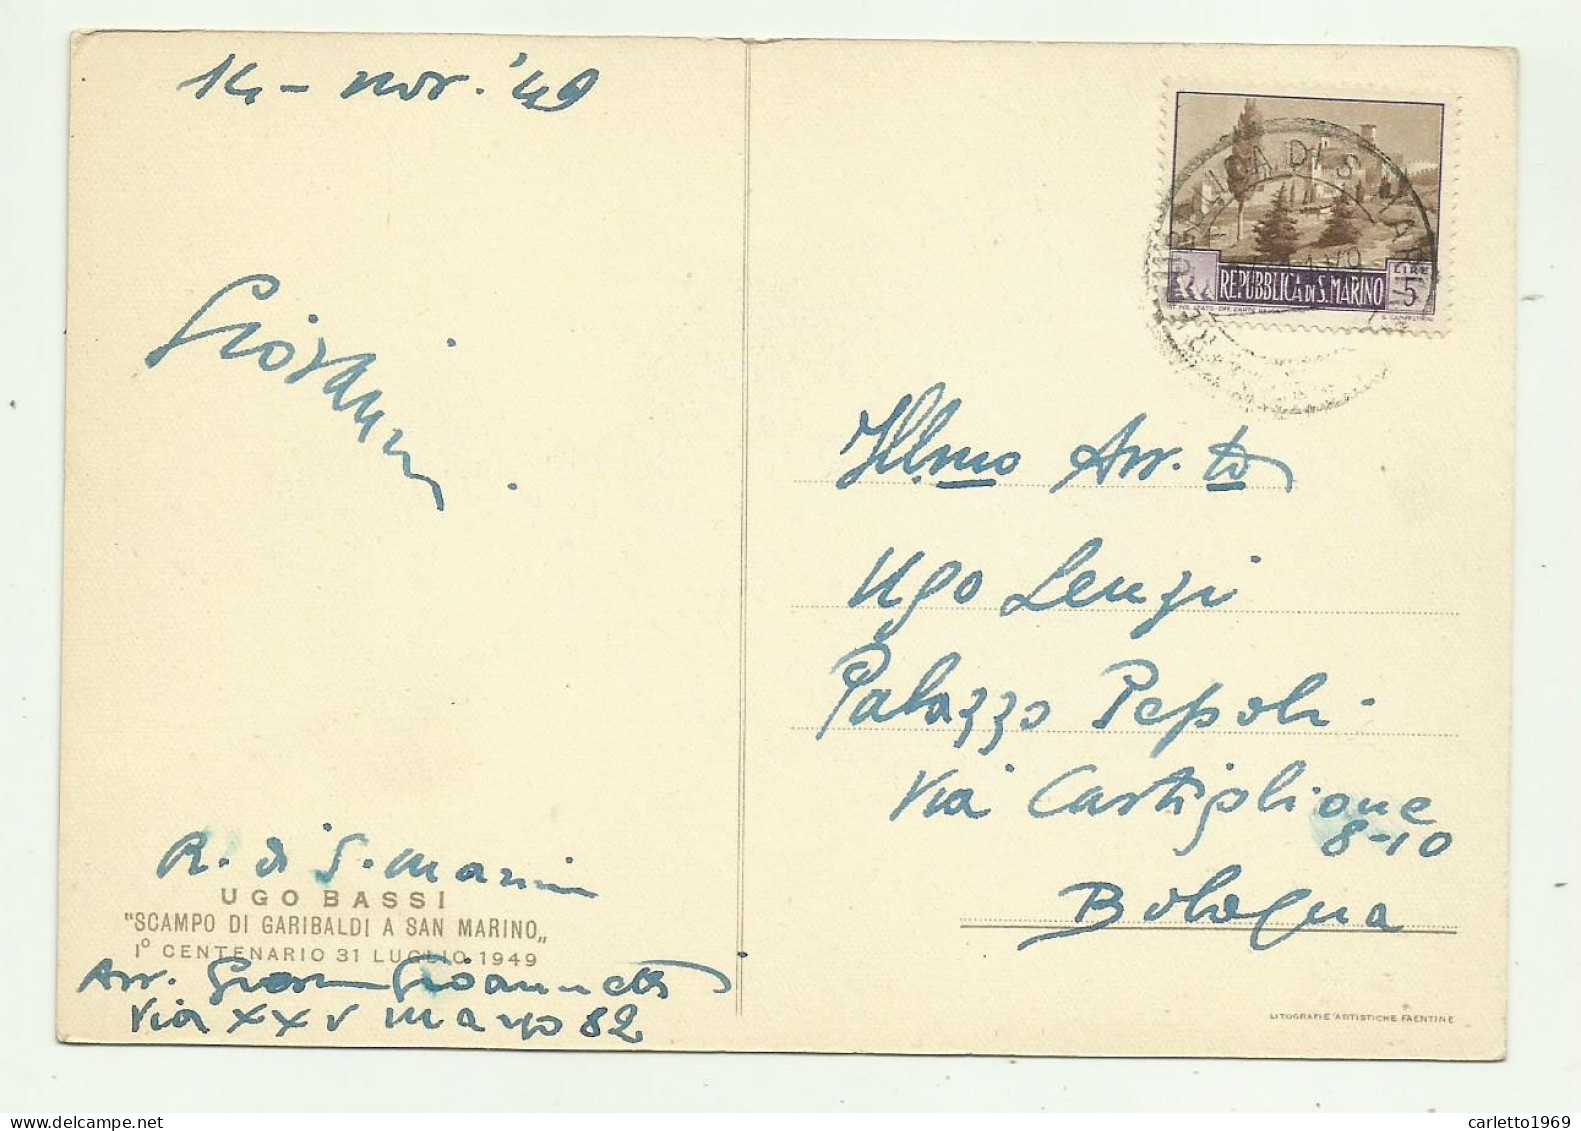 14 - nov. '49
Giovanni
R. di S. Marino
UGO BASSI
"SCAMPO DI GARIBALDI A SAN MARINO„
1º CENTENARIO 31 LUGLIO 1949
Avv. Giovanni Gioannetti
Via XXV marzo 82
REPUBBLICA DI S. MARINO
LIRE
5
Illmo Avv.to
Ugo Lenzi
Palazzo Pepoli -
Via Castiglione
8-10
Bologna
LITOGRAFIE ARTISTICHE FAENTINE
carletto1969